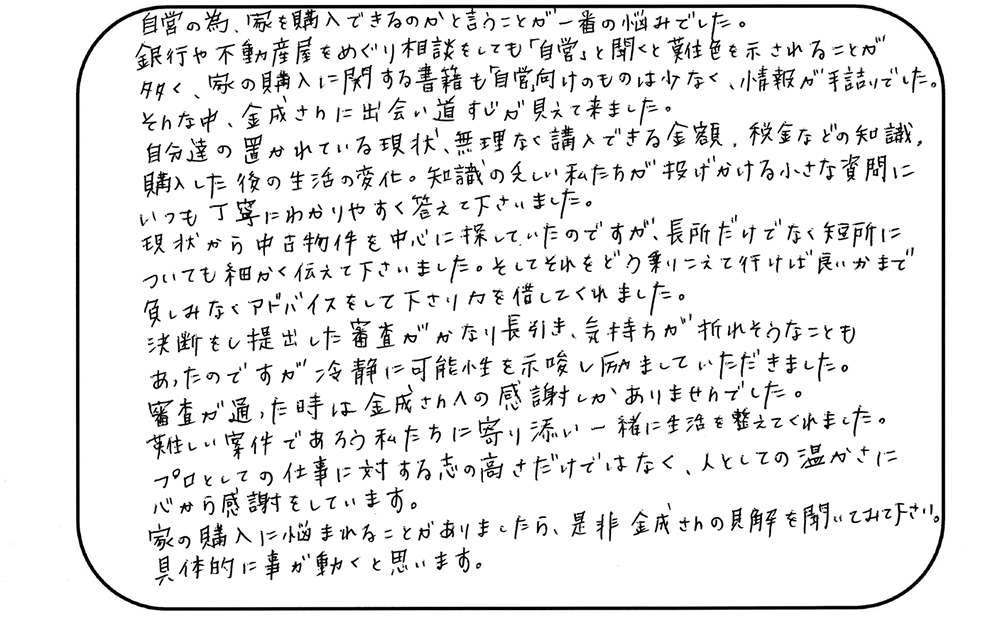 自営の為、家を購入できるのかと言うことが一番の悩みでした。
銀行や不動産屋をめぐり相談をしても「自営」と聞くと難色を示されることが
多く、家の購入に関する書籍も「自営」向けのものは少なく、情報が手詰りでした。
そんな中、金成さんに出会い道すじが見えて来ました。
自分達の置かれている現状、無理なく購入できる金額、税金などの知識、
購入した後の生活の変化。知識の乏しい私たちが投げかける小さな質問に
いつも丁寧にわかりやすく答えて下さいました。
現状から中古物件を中心に探していたのですが、長所だけでなく短所に
ついても細かく伝えて下さいました。そしてそれをどう乗りこえて行けば良いかまで
負しみなくアドバイスをして下さり力を借してくれました。
決断をし提出した審査がかなり長引き、気持ちが折れそうなことも
あったのですが冷静に可能性を示唆し励ましていただきました。
審査が通った時は金成さんへの感謝しかありませんでした。
難しい案件であろう私たちに寄り添い一緒に生活を整えてくれました。
プロとしての仕事に対する志の高さだけではなく、人としての温かさに
心から感謝をしています。
家の購入に悩まれることがありましたら、是非金成さんの見解を聞いてみて下さい。
具体的に事が動くと思います。